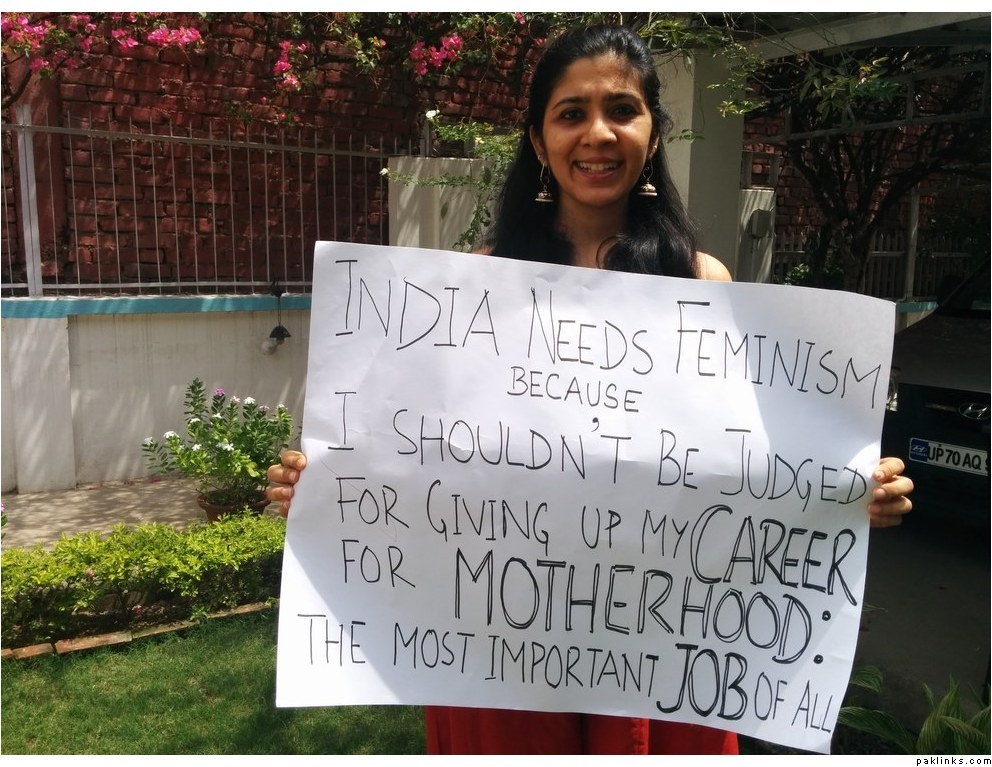 INDIA NEEDS FEMINISM
BECAUSE
I SHOULDN'T BE JUDGED
FOR GIVING UP MY CAREER
FOR MOTHERHOOD:
THE MOST IMPORTANT JOB OF ALL
UP 70 AQ
paklinks.com